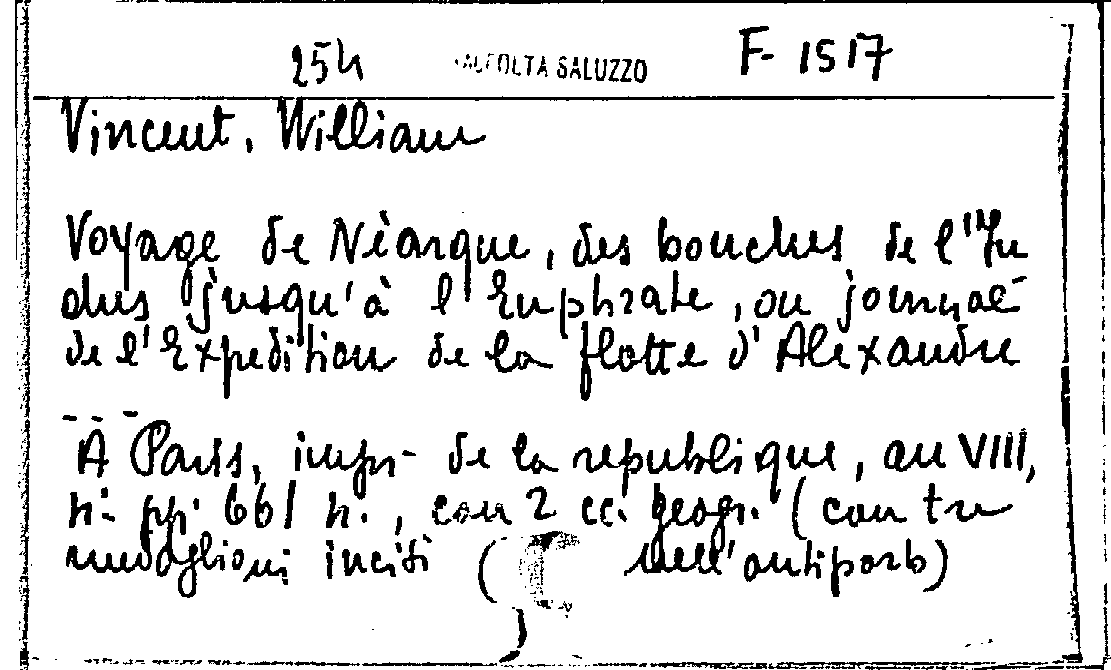 25h RACCOLTA SALUZZO F- 1517
Vincent, William
Voyage de Nèarque, des bouches de l'In
dus jusqu'à l'Euphrate, ou journal
de l'Expedition de la flotte d'Alexandre
---
A Paris, impr- de la republique, an VIII,
4° pp. 661 n., con 2 cc. geogr. (con tre
medaglioni incisi ( nell'antiporta)